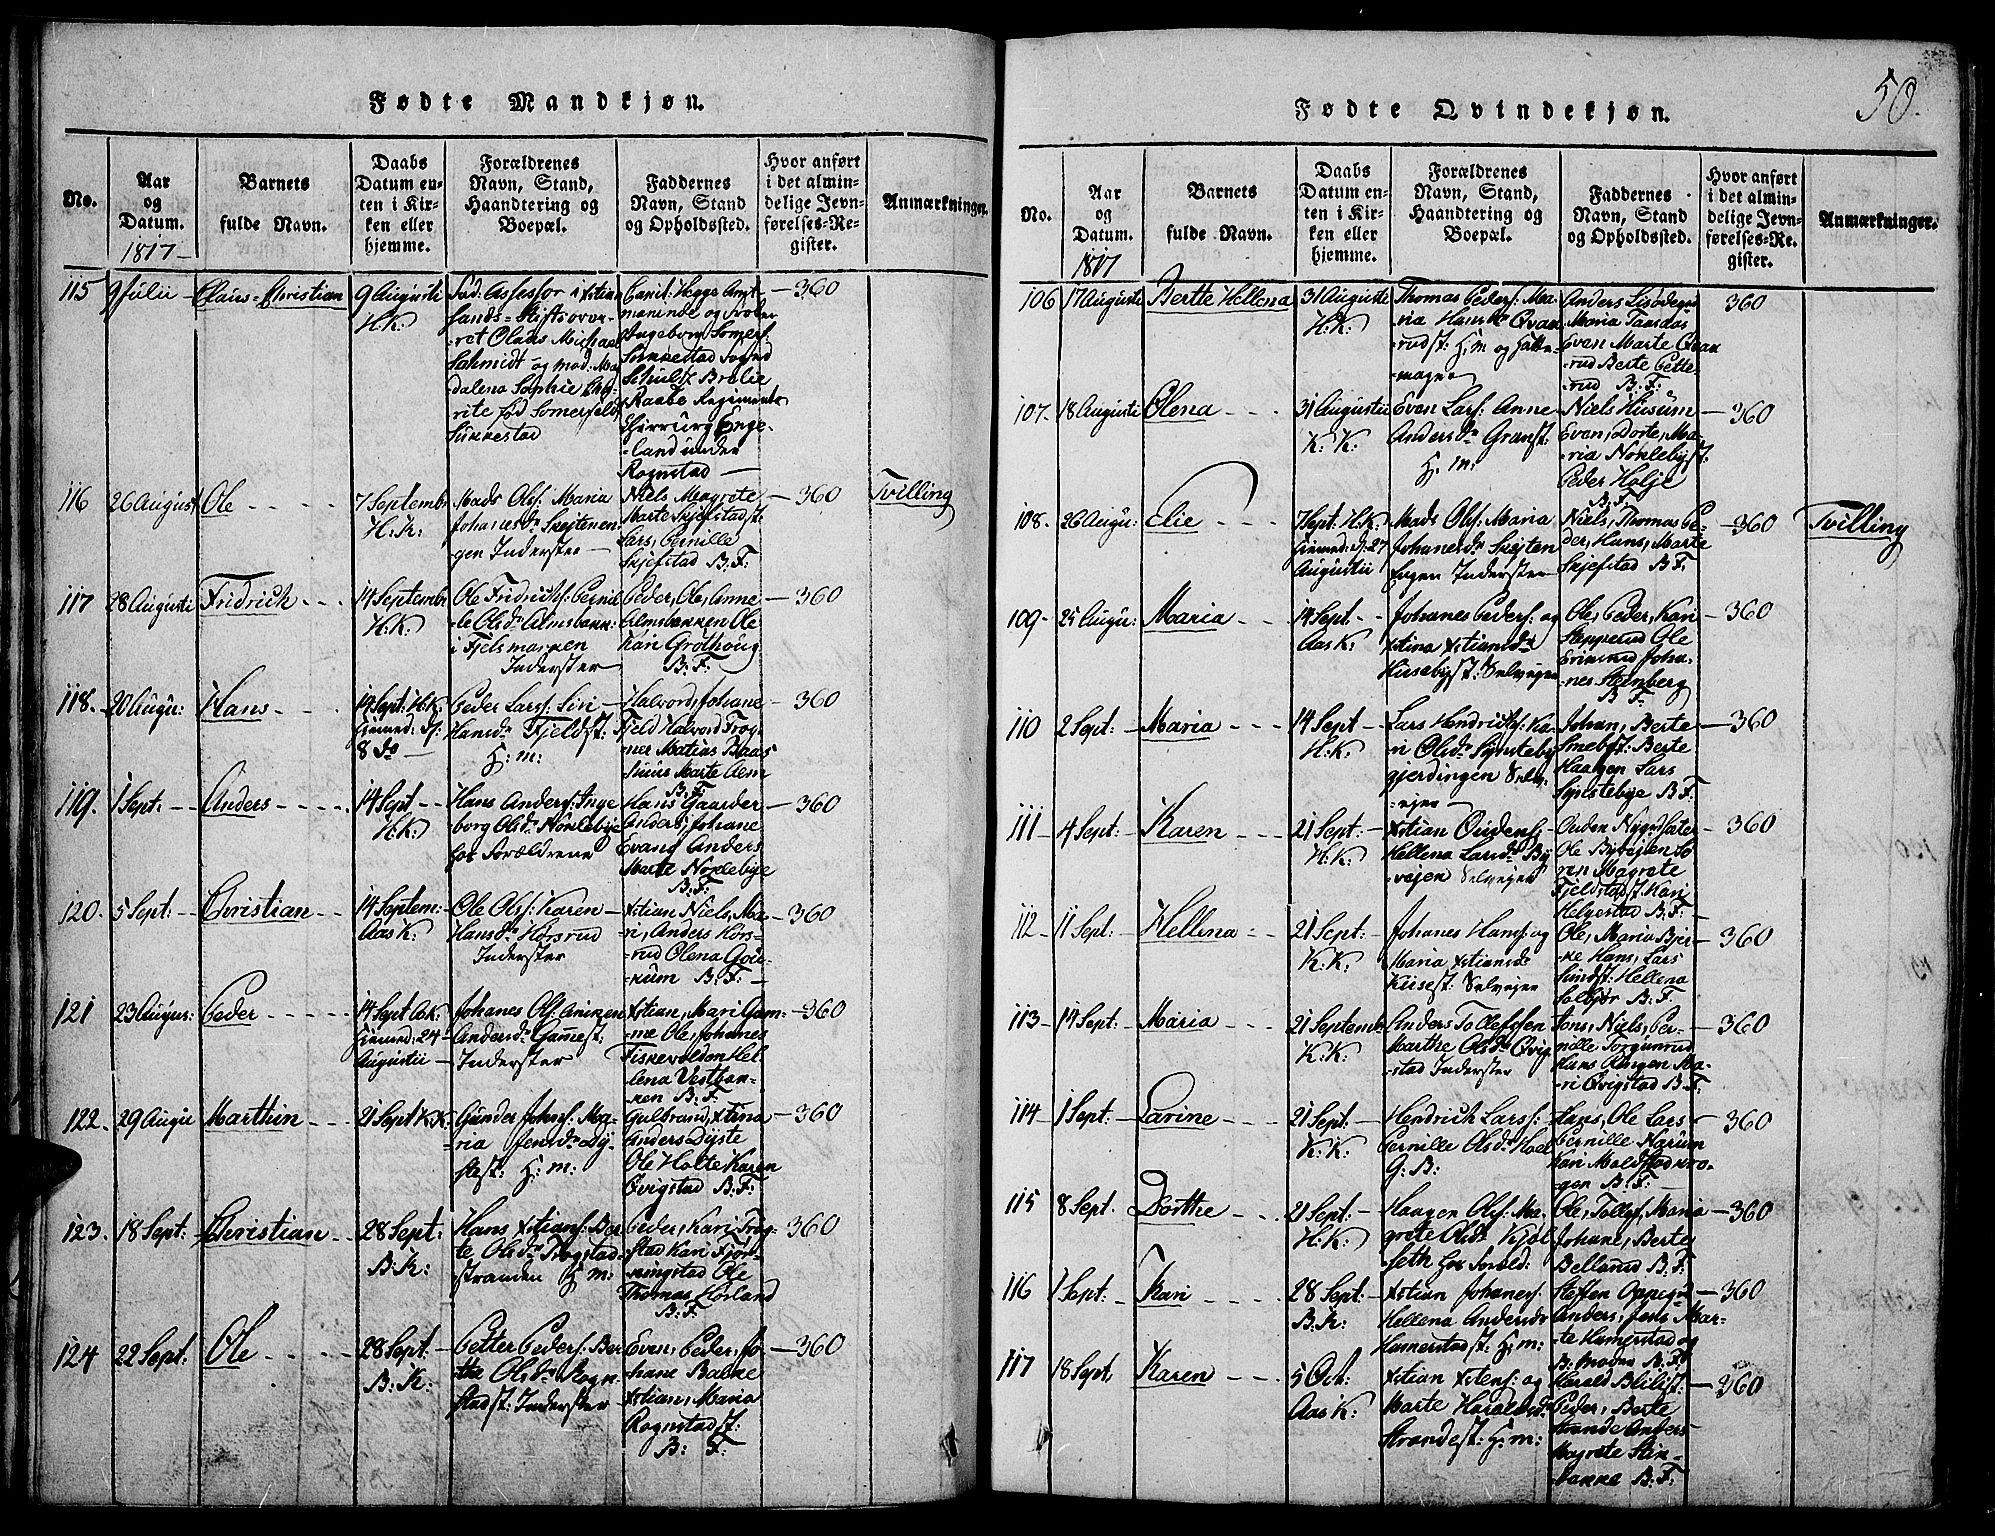 Fødte Mandkjøn.
No.
Aar
og
Datum.
1817
Barnets
fulde Navn.
Daabs
Datum en-
ten i Kir-
ken eller
hjemme.
Forældrenes
Navn, Stand,
Haandtering og
Boepæl.
Faddernes
Navn, Stand
og Opholdssted.
Hvor anført
i det almin-
delige Jevn-
førelses-Re-
gister.
Anmærkninger.
115
9 Julii
Claus Christian
9 Augusti
H.K:
Assessor i Xtian
sands Stiftsover-
ret Olaus Michael
Schmidt og mad: Ma
dalena Sophie
rite fød Somerfeldt
Sukkestad
360
Ingeborg Somerf:
Sukkestad
Schultz
Raabe Regiments
Chirurg Enge-
land under
Rognstad
116
26 August
Ole
7 Septembr
H.K:
Mads Ols: Maria
Johanesdr Skejtenen-
gen Inderster
Niels Magrete
Marte Skjefstadst:
Lars, Pernille
Skjefstad B.F:
360
Tvilling
117
28 Augusti
Fridrich
14 Septembr
H.K:
Ole Fridrichs: Pernil
le Olsdr Almsbakk:
i Fjelsmarken
Inderster
Peder, Ole, Anne
Almsbakken Ole
Kari Grothoug
B.F:
360
118.
20 Augu:
Hans
14 Sept: H.K:
hjemed: d:
8 do
Peder Lars: Siri
Hansdr Fjeldst:
H: m:
Halvord, Johane
Fjeld Halvord Frog
ner Matias
Marte Alm
B.F:
360
119.
1 Sept:
Anders
14 Sept
H.K:
Hans Anders: Inge
borg Olsdr Nordlebye
hos Forældrene
Hans Gaarder
Anders, Johane
Evang Anders
Marte Nordlebye
B.F:
360
120.
5 Sept:
Christian
14 Septem:
Aas K:
Ole Ols: Karen
Hansdr Horsrud
Inderster
Xtian Niels, Ma-
ri, Anders Kors-
rud Olena
B.F:
360
121
23 Augus:
Peder
14 Sept AsK:
hjemed: 24
Augustii
Johanes Ols: Aniken
Andersdr Gammest:
Inderster
Xtian, Mari Gam-
me Ole, Johanes
Fiskevolden Hel-
lena Vestbak-
ken B.F:
360
122.
29 Augu
Marthin
21 Sept KK
Gunder Johans: Ma-
ria Jensdr Dy-
stest: H: m:
Gulbrand, Xtina
Anders Dyste
Ole Holte Karen
Qvigstad B.F:
360
123.
18 Sept:
Christian
28 Sept:
B.K:
Hans Xtians: Ber
te Olsdr Rogstad-
stranden H: m:
Peder, Kari Rog
stad Kari
Ole
Thomas Horland
B.F:
360
124
22 Sept:
Ole
28 Sept:
B.K:
Petter Peders: Ber
the Olsdr Rogn-
stadst: Inderster
Even, Peder, Jo-
hane Bakke
Xtian, Maria
Rognstadst:
B: F:
360
50.
Fødte Qvindekjøn.
No.
Aar
og
Datum.
1817
Barnets
fulde Navn.
Daabs
Datum en-
ten i Kir-
ken eller
hjemme.
Forældrenes
Navn, Stand,
Haandtering og
Boepæl.
Faddernes
Navn, Stand
og Opholdssted.
Hvor anført
i det almin-
delige Jevn-
førelses-Re-
gister.
Anmærkninger.
106
17 Augusti
Berthe Hellena
31 Augusti
H.K:
Thomas Peders: Ma-
ria Hansdr Qvan
rudst: H: m og Hatte
mager
Anders
Maria
Even Marte Qvan
rud Berte Pette
rud B.F:
360
107.
18 Augusti
Olena
31 Augustii
K.K:
Even Lars: Anne
Andersdr Granst:
H: m:
Niels Husum
Even, Dorte, Ma-
ria Nordlebyst:
Peder Holje
B.F:
360
108.
26 Augu:
Elie
7 Sept: H.K:
hjemed: d: 27
Augustii
Mads Ols: Maria
Johanesdr Skejten
Engen Inderster
Niels, Thomas Pe-
der, Hans, Marte
Skjefstad B.F:
360
Tvilling
109
25 Augu:
Maria
14 Sept
Aas K:
Johanes Peders: og
Xtina Xtiansdr
Husebyst: Selvejer
Ole, Peder, Kari
Stepperud Ole
Johan-
nes Steenberg
B.F:
360
110
2 Sept:
Maria
14 Sept
H.K:
Lars Hendrichs: Ka-
ri Olsdr Synsteby
gjerdingen Selv-
ejer
Johan, Berte
Smebyst: Berte
Haagen Lars
Synstebye B.F:
360
111
4 Sept:
Karen
21 Sept:
H.K:
Xtian Oudens:
Hellena Larsdr By
vejen Selvejer
Ouden Nygdsæter
Ole Byvejen So
ren Magrete
Fjeldstadst Kari
Helgestad B.F:
360
112
11 Sept:
Hellena
21 Sept:
K.K:
Johanes Hans: og
Maria Xtiansdr
Kisest: Selvejer
Ole, Maria Bjer-
ke Hans, Lars
Sundst: Hellena
Solbjør B.F:
360
113
14 Sept:
Maria
21 Septembr
K.K:
Anders Tollefsen
Marthe Olsdr Qvig
stad Inderster
Jens, Niels, Per-
nille Torgunrud
Hans Ringen Ma-
ri Qvigstad B.F:
360
114
1 Sept:
Larine
21 Sept:
K.K:
Hendrich Larss:
Pernille Olsdr Hoel
G: B:
Hans, Ole Lars
Pernille Narum
Kari Moldstadkro-
gen B.F:
360
115
8 Sept.
Dorthe
21 Sept:
H.K:
Haagen Ols: Ma-
grete Olsdr Kjol
seth hos Foræld:
Ole, Tollef, Maria
Johane, Berte
Bellerud B.F:
360
116
1 Sept:
Kari
28 Sept
B.K:
Xtian Johanes:
Hellena Andersdr
Hamerstadst: H: m:
Steffen Oppegd
Anders, Jens Mar-
te Hamerstad og
B: moder B.F:
360
117
18 Sept,
Karen
5 Oct:
Aas K:
Xtian Xtens: og
Marte Haraldsdr
Strandest: H: m:
Harald Blilist:
Peder, Berte
Strande Anders
Magrete Sten-
bakke B.F:
360